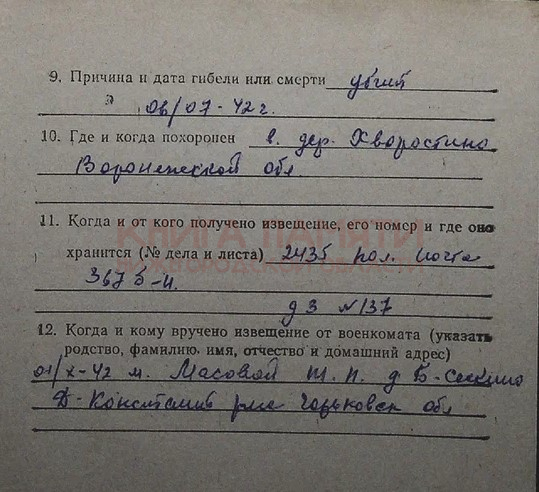 9. Причина и дата гибели или смерти убит
06/07-42 г.
10. Где и когда похоронен в. дер. Хворостино
Воронежской обл
11. Когда и от кого получено извещение, его номер и где оно
хранится (№ дела и листа) 2435 пол. почта
КНИГА ПАМЯТИ
367 Б-н.
д 3 № 137
12. Когда и кому вручено извещение от военкомата (указать
родство, фамилию, имя, отчество и домашний адрес)
01/X-42 м. Масовой Т. П. д Б-
Д-Константин Горьковск обл